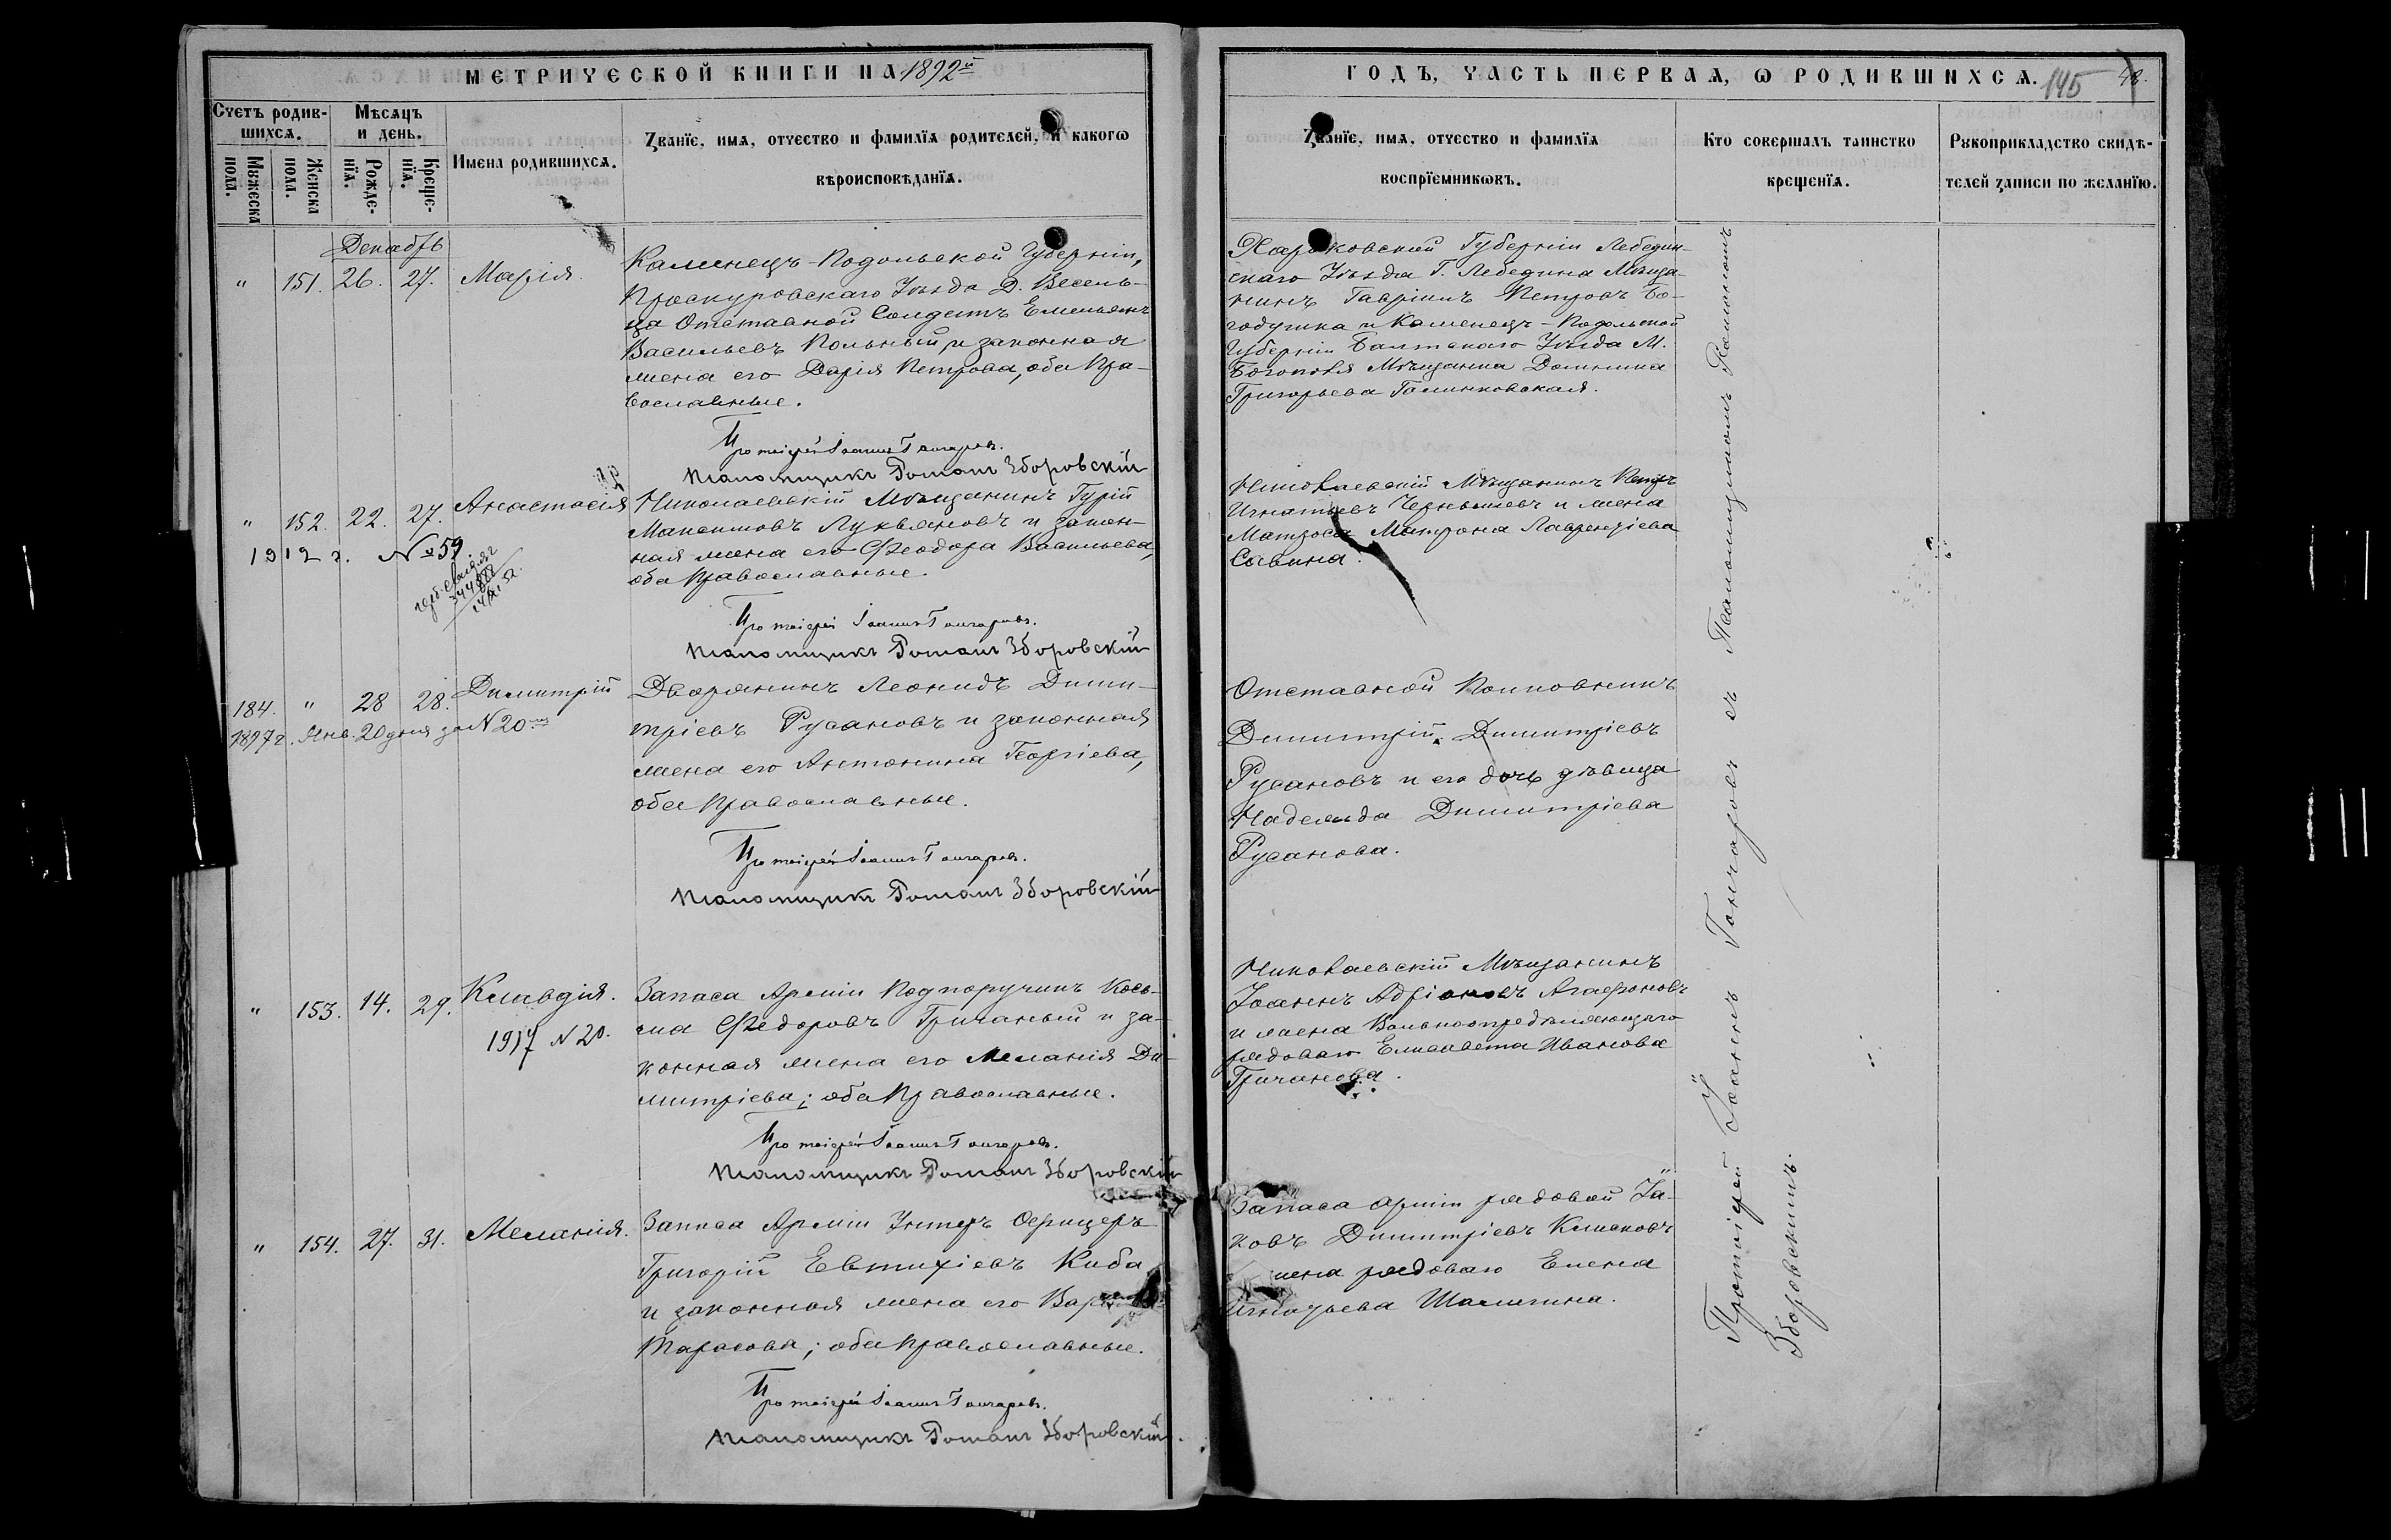 МЕТРИЧЕСКОЙ КНИГИ НА 1892й
ГОДЪ, ЧАСТЬ ПЕРВАѦ, Ѡ РОДИВШИХСѦ. 145
Счетъ родив-
шихсѧ.
Мѣсѧцъ
и день.
Имена родившихсѧ.
Мꙋжеска
пола.
Женска
пола.
Рожде-
нїѧ.
Креще-
нїѧ.
Ꙁванїе, имѧ, отчество и фамилїѧ родителей, и какогѡ
вѣроисповѣданїѧ.
Ꙁванїе, имѧ, отчество и фамилїѧ
воспрїемникѡвъ.
Кто совершалъ таинство
крещенїѧ.
Рꙋкоприкладство свидѣ-
телей ꙁаписи по желанїю.
Декабрь
" 151. 26. 27. Марія.
Каменецъ-Подольской Губерніи,
Проскуровскаго Уѣзда Д. Весель-
ца Отставной Солдатъ Емельянъ
Васильевъ Польный, и законная
жена его Дарія Петрова, оба Пра-
вославные.
Протоіерей Іоаннъ Гончаровъ.
Псаломщикъ Романъ Зборовскій
Харьковской Губерніи Лебедин-
скаго Уѣзда Г. Лебедина Мѣща-
нинъ Гавріилъ Петровъ Бо-
годушка и Каменецъ-Подольской
Губерніи Балтскаго Уѣзда М.
Богополя Мѣщанка Домникія
Григорьева Галинковская.
" 152. 22. 27. Анастасія
1912 г. № 59
Николаевскій Мѣщанинъ Гурій
Максимовъ Лукьяновъ и закон-
ная жена его Ѳеодора Васильева,
оба Православные.
Протоіерей Іоаннъ Гончаровъ.
Псаломщикъ Романъ Зборовскій
Николаевскій Мѣщанинъ Петръ
Игнатьевъ Чернышевъ и жена
Матроса Матрона Лаврентіева
Савина.
184. " 28 28. Димитрій
1897 г. Янв. 20 дня за N 20
Дворянинъ Леонидъ Дими-
тріевъ Русановъ и законная
жена его Антонина Георгіева,
оба Православные.
Протоіерей Іоаннъ Гончаровъ.
Псаломщикъ Романъ Зборовскій
Отставной Полковникъ
Димитрій Димитріевъ
Русановъ и его дочь дѣвица
Надежда Димитріева
Русанова.
" 153. 14. 29. Клавдія.
1917 N 20.
Запаса Арміи Подпоручикъ Кось-
ма Ѳедоровъ Гричаный и за-
конная жена его Меланія Ди-
митріева; оба Православные.
Протоіерей Іоаннъ Гончаровъ.
Псаломщикъ Романъ Зборовскій
Николаевскій Мѣщанинъ
Іоаннъ Адріановъ Агафоновъ
и жена Вольноопредѣляющаго
рядоваго Елисавета Иванова
Гричанова.
" 154. 27. 31. Меланія.
Запаса Арміи Унтеръ Офицеръ
Григорій Евтихіевъ Киба
и законная жена его
Тарасова; оба Православные.
Протоіерей Іоаннъ Гончаровъ.
Псаломщикъ Романъ Зборовскій.
Запаса арміи рядовой Іа-
ковъ Димитріевъ Климовъ
жена рядоваго Елена
Игнатьева Шалыгина.
Протоіерей Іоаннъ Гончаровъ съ Псаломщикомъ Романомъ
Зборовскимъ.